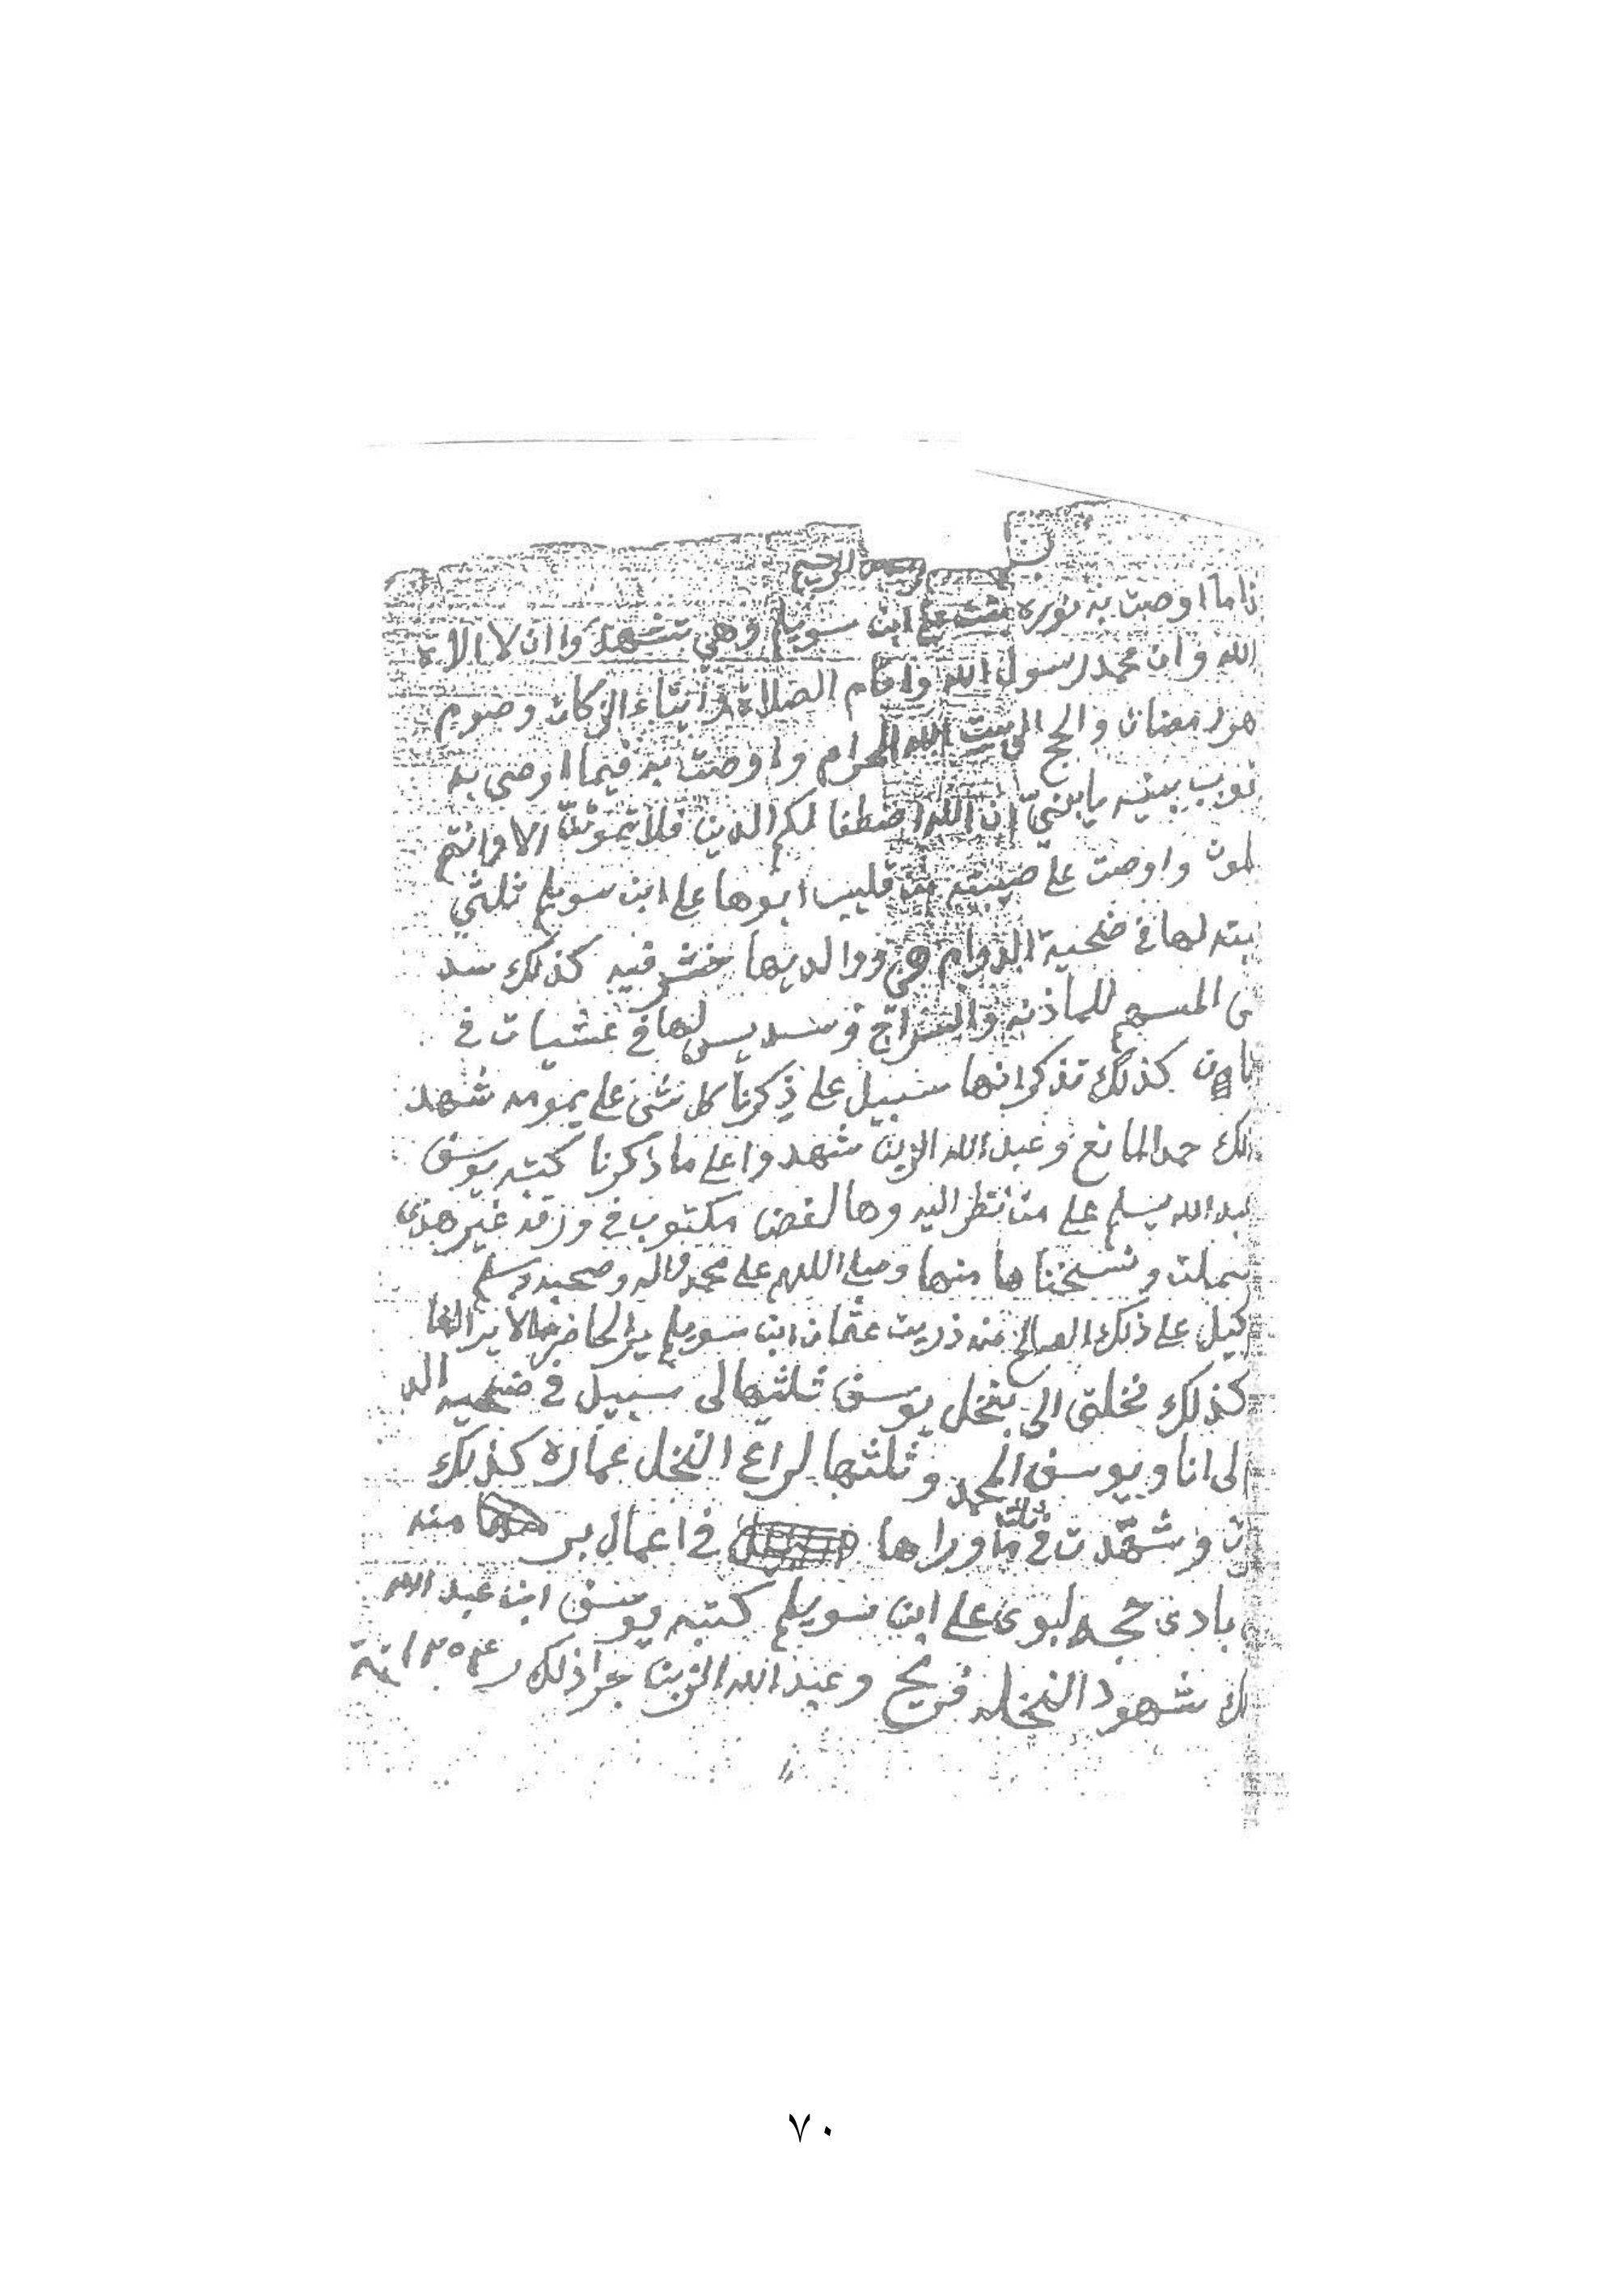 الرحيم
اما اوصت به نوره بنت علي ابن سويلم وهي تشهد واان لا الاه
الله وان محمد رسول الله واقام الصلاة وايتاء الزكات وصوم
هور رمضان والحج الى بيت الله الحرام واوصت به فيما اوصى به
بنيه يا بني ان الله اصطفا لكم الدين فلا تموتن الا وانتم
واوصت على صيبته من قليب ابوها علي ابن سويلم ثلثي
لها في ضحية الدوام هي ووالديها فيه كذلك سد
ى المسهم للماذنه والسراج وسديس لها في عشيات في
كذلك تذكر انها سبيل على ذكرنا كل شي على يومه شهد
لك حمد المانع وعبدالله الزبن شهدوا على ما ذكرنا كتبه يوسف
بدالله يسلم على من نظر اليه وها لفض مكتوب في ورقه غير هذي
ونسخناها منها وصلى اللهم على محمد واله وصحبه وسلم
كيل على ذلك الصالح من ذريت عثمان ابن سويلم
كذلك نخلتي الى بنخل يوسف ثلثها لي سبيل في ضحيه الد
الى انا ويوسف المحمد وثلثها لراع النخل عماره كذلك
ت وشهدت في ثالث ما وراها في اعمال بر منه
بادي حجه لبوي علي ابن سويلم كتبه يوسف ابن عبدالله
ك شهود النخله فريح وعبدالله الزبن جرا ذلك ١٢٥٣
٧٠